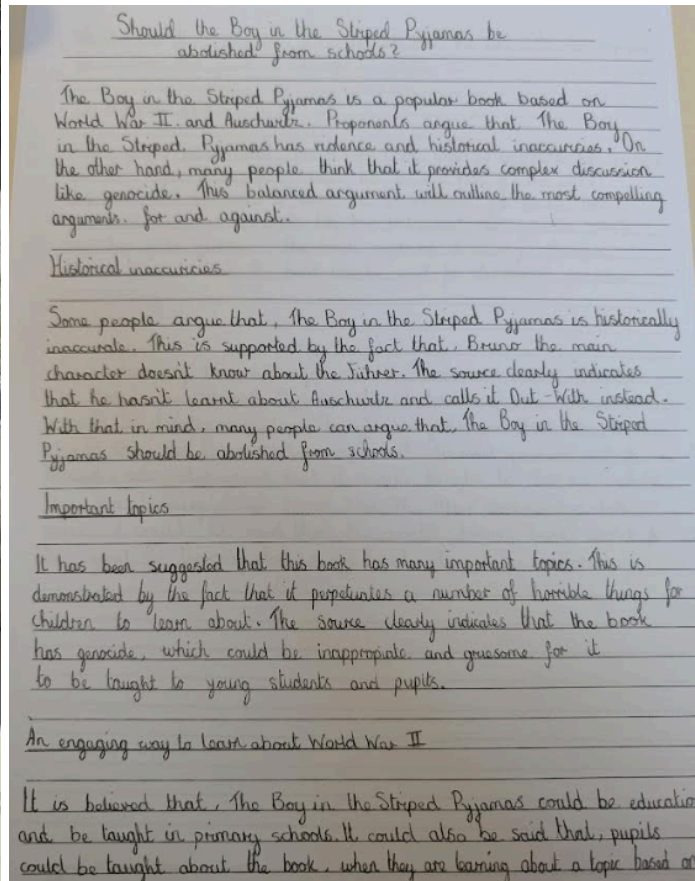 Should the Boy in the Striped Pyjamas be
abolished from schools?
The Boy in the Striped Pyjamas is a popular book based on
World War II. and Auschwitz. Proponents argue that The Boy
in the Striped. Pyjamas has violence and historical inaccuricies. On
the other hand, many people think that it provides complex discussion
like genocide. This balanced argument will outline the most compelling
arguments. for and against.
Historical inaccuricies
Some people argue that, The Boy in the Striped Pyjamas is historically
inaccurate. This is supported by the fact that, Bruno the main
character doesn't know about the Führer. The source clearly indicates
that he hasn't learnt about Auschwitz and calls it Out-With instead.
With that in mind, many people can argue that, The Boy in the Striped
Pyjamas should be abolished from schools.
Important topics
It has been suggested that this book has many important topics. This is
demonstrated by the fact that it perpetuates a number of horrible things for
children to learn about. The source clearly indicates that the book
has genocide, which could be inappropiate and gruesome for it
to be taught to young students and pupils.
An engaging way to learn about World War II
It is believed that, The Boy in the Striped Pyjamas could be educatio
and be taught in primary schools. It could also be said that, pupils
could be taught about the book, when they are learning about a topic based on